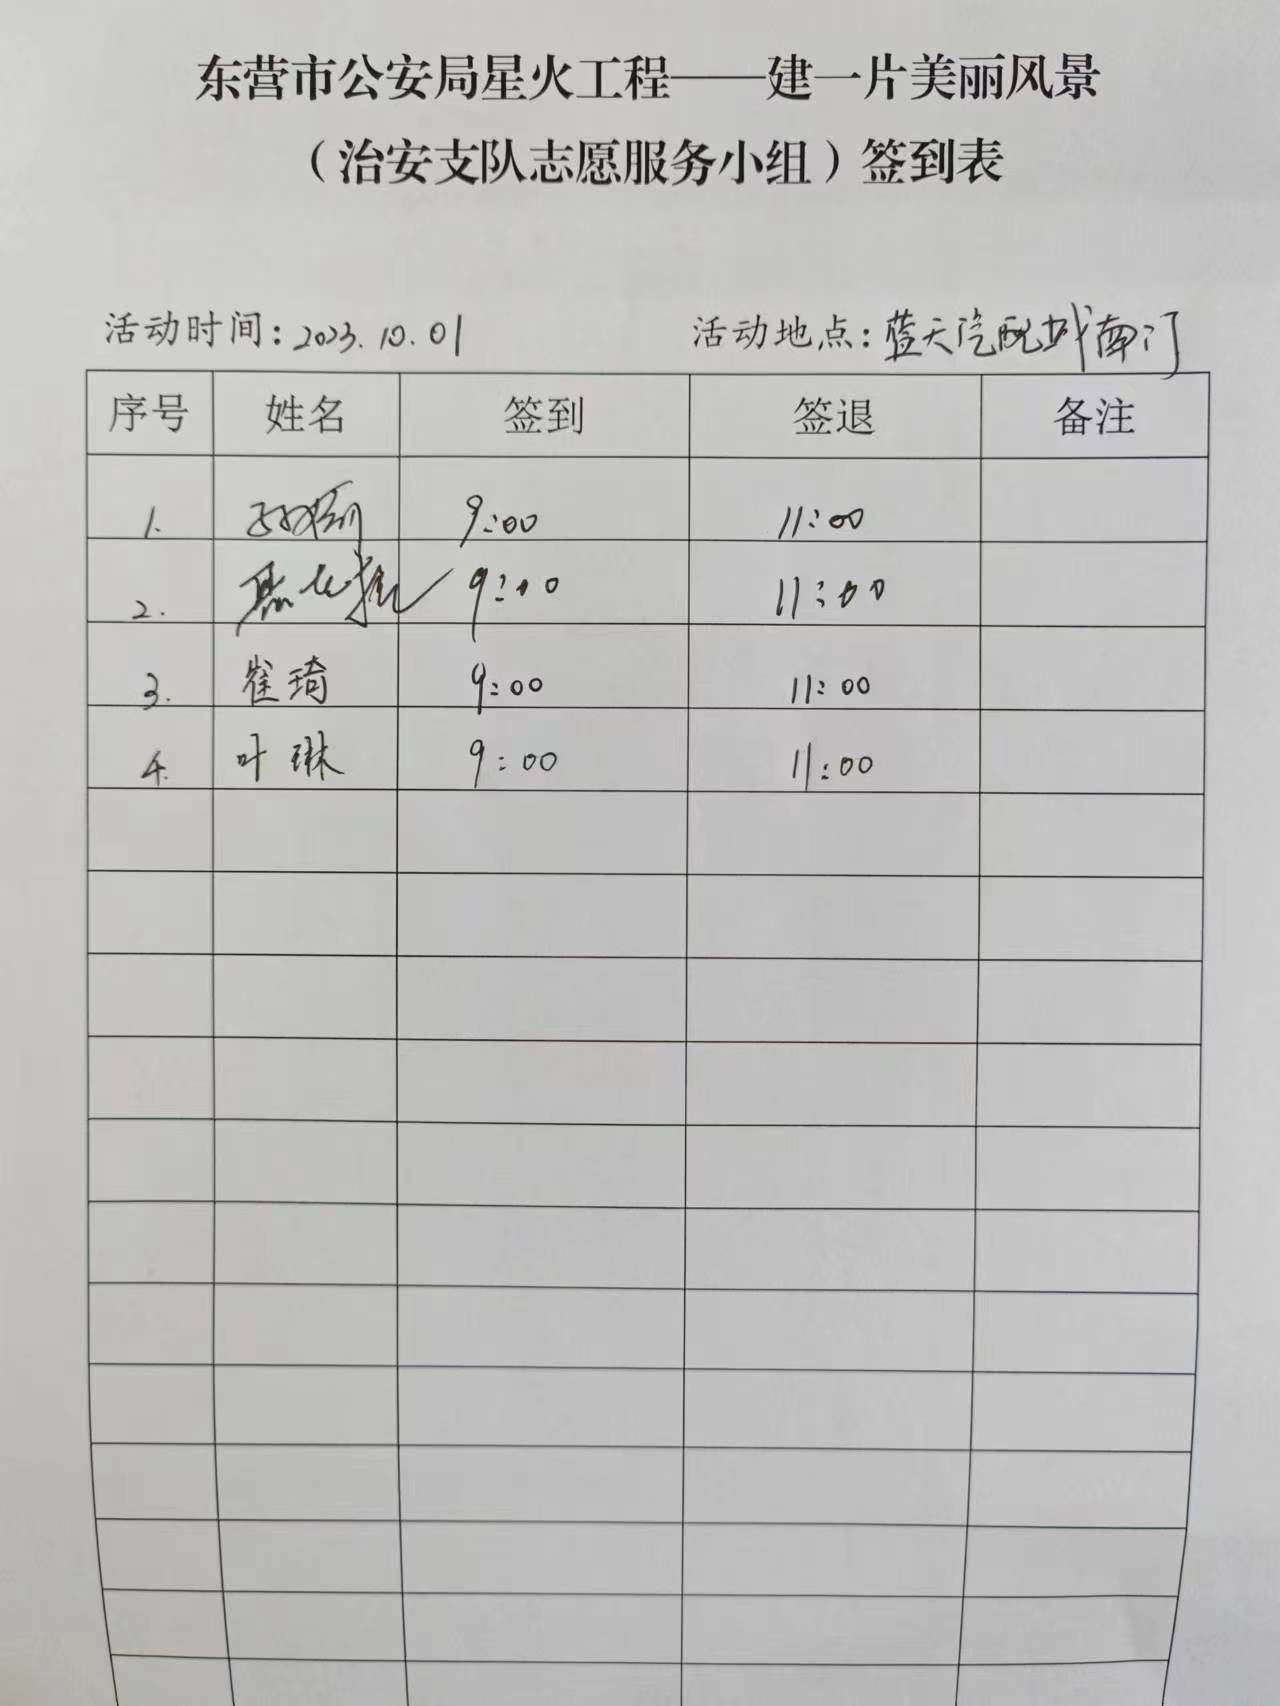 东营市公安局星火工程——建一片美丽风景
（治安支队志愿服务小组）签到表
活动时间：2023.10.01 活动地点：蓝天汽配城南门
序号 姓名 签到 签退 备注
1. 9:00 11:00
2. 9:00 11:00
3. 崔琦 9:00 11:00
4. 叶琳 9:00 11:00